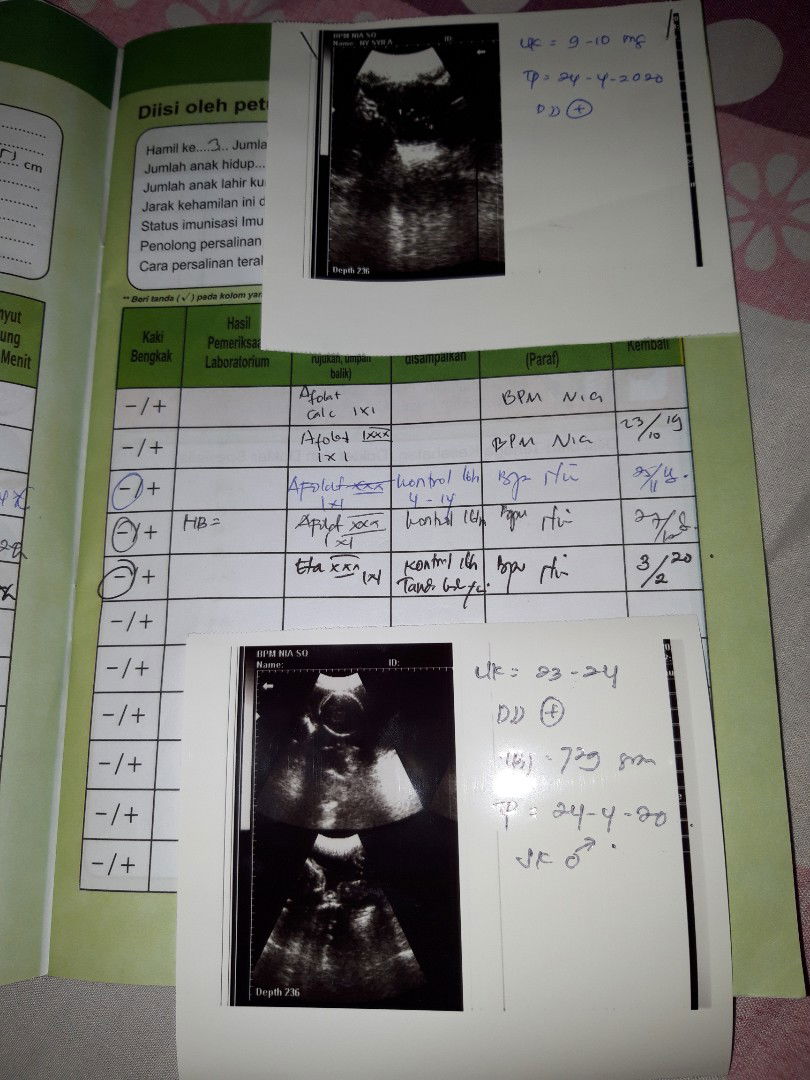 BPM NIA SO
Name: NY SYFA ID:
UK = 9-10 mg
TP = 24-4-2020
DD (+)
Depth 236
Diisi oleh pet
Hamil ke....3... Jumla
Jumlah anak hidup...
Jumlah anak lahir ku
Jarak kehamilan ini d
Status imunisasi Imu
Penolong persalinan
Cara persalinan terak
cm
** Beri tanda (√) pada kolom yan
nyut
ung
Menit
Kaki Bengkak
Hasil Pemeriksa Laboratorium
rujukan, umpan balik)
disampaikan
(Paraf)
Kembali
-/+ Afolat calc 1x1 BPM Nia
-/+ Afolat 1xxx 1x1 BPM Nia 23/10 19
-/+ Afolat xxx 1x1 kontrol 4-14 Bpm Nia
-/+ HB = xxx x1 kontrol Bpm Nia
-/+ Eta xxx 1x1 kontrol Bpm Nia 3/2 20
-/+
-/+
-/+
-/+
-/+
-/+
BPM NIA SO
Name: ID:
UK = 23-24
DD (+)
= 729 gram
TP = 24-4-20
JK ♂
Depth 236